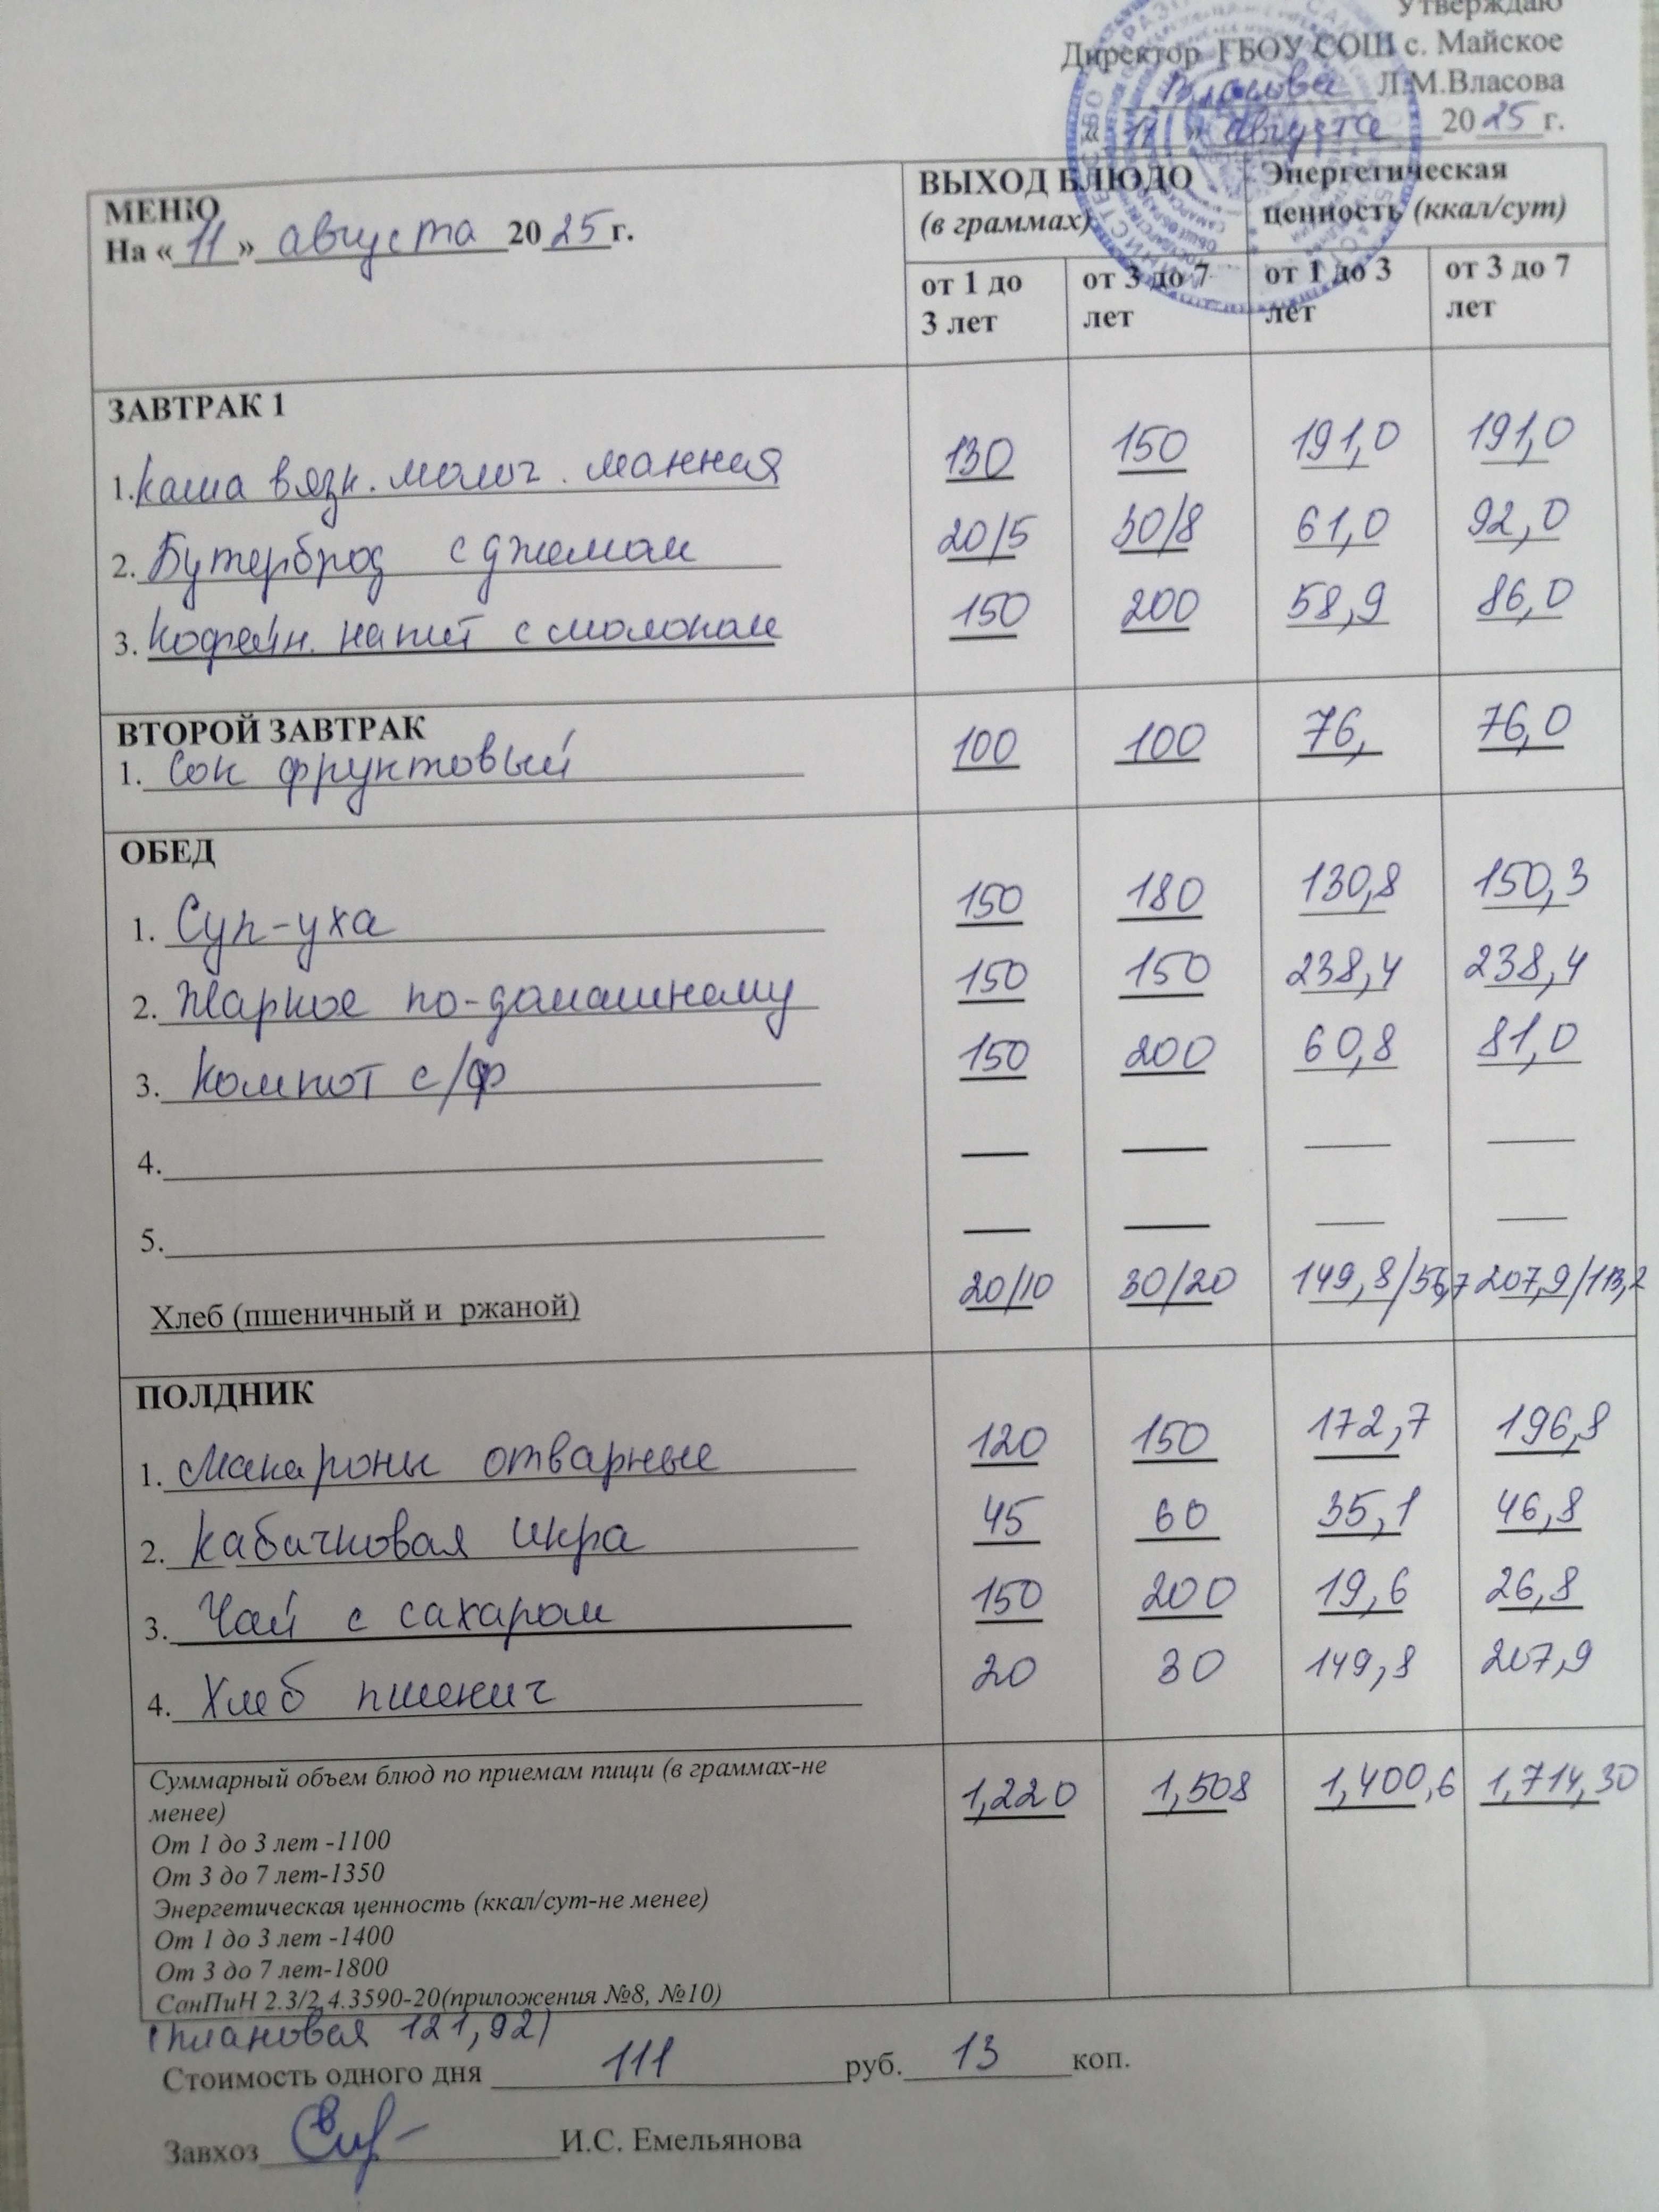 Утверждаю
Директор ГБОУ СОШ с. Майское
Власова Л.М.Власова
« 11 » августа 20 25 г.
МЕНЮ
На « 11 » августа 20 25 г.
ВЫХОД БЛЮДО
(в граммах)
Энергетическая
ценность (ккал/сут)
от 1 до
3 лет
от 3 до 7
лет
от 1 до 3
лет
от 3 до 7
лет
ЗАВТРАК 1
1. Каша вязк. молоч. манная 130 150 191,0 191,0
2. Бутерброд с джемом 20/5 30/8 61,0 92,0
3. Кофейн. напит с молоком 150 200 58,9 86,0
ВТОРОЙ ЗАВТРАК
1. Сок фруктовый 100 100 76, 76,0
ОБЕД
1. Суп-уха 150 180 130,8 150,3
2. Жаркое по-домашнему 150 150 238,4 238,4
3. Компот с/ф 150 200 60,8 81,0
4. — — — —
5. — — — —
Хлеб (пшеничный и ржаной) 20/10 30/20 149,8/56,7 207,9/113,2
ПОЛДНИК
1. Макароны отварные 120 150 172,7 196,8
2. Кабачковая икра 45 60 35,1 46,8
3. Чай с сахаром 150 200 19,6 26,8
4. Хлеб пшенич 20 30 149,8 207,9
Суммарный объем блюд по приемам пищи (в граммах-не 1,220 1,508 1,400,6 1,714,30
менее)
От 1 до 3 лет -1100
От 3 до 7 лет-1350
Энергетическая ценность (ккал/сут-не менее)
От 1 до 3 лет -1400
От 3 до 7 лет-1800
СанПиН 2.3/2.4.3590-20(приложения №8, №10)
(плановая 121,92)
Стоимость одного дня 111 руб. 13 коп.
Завхоз И.С. Емельянова